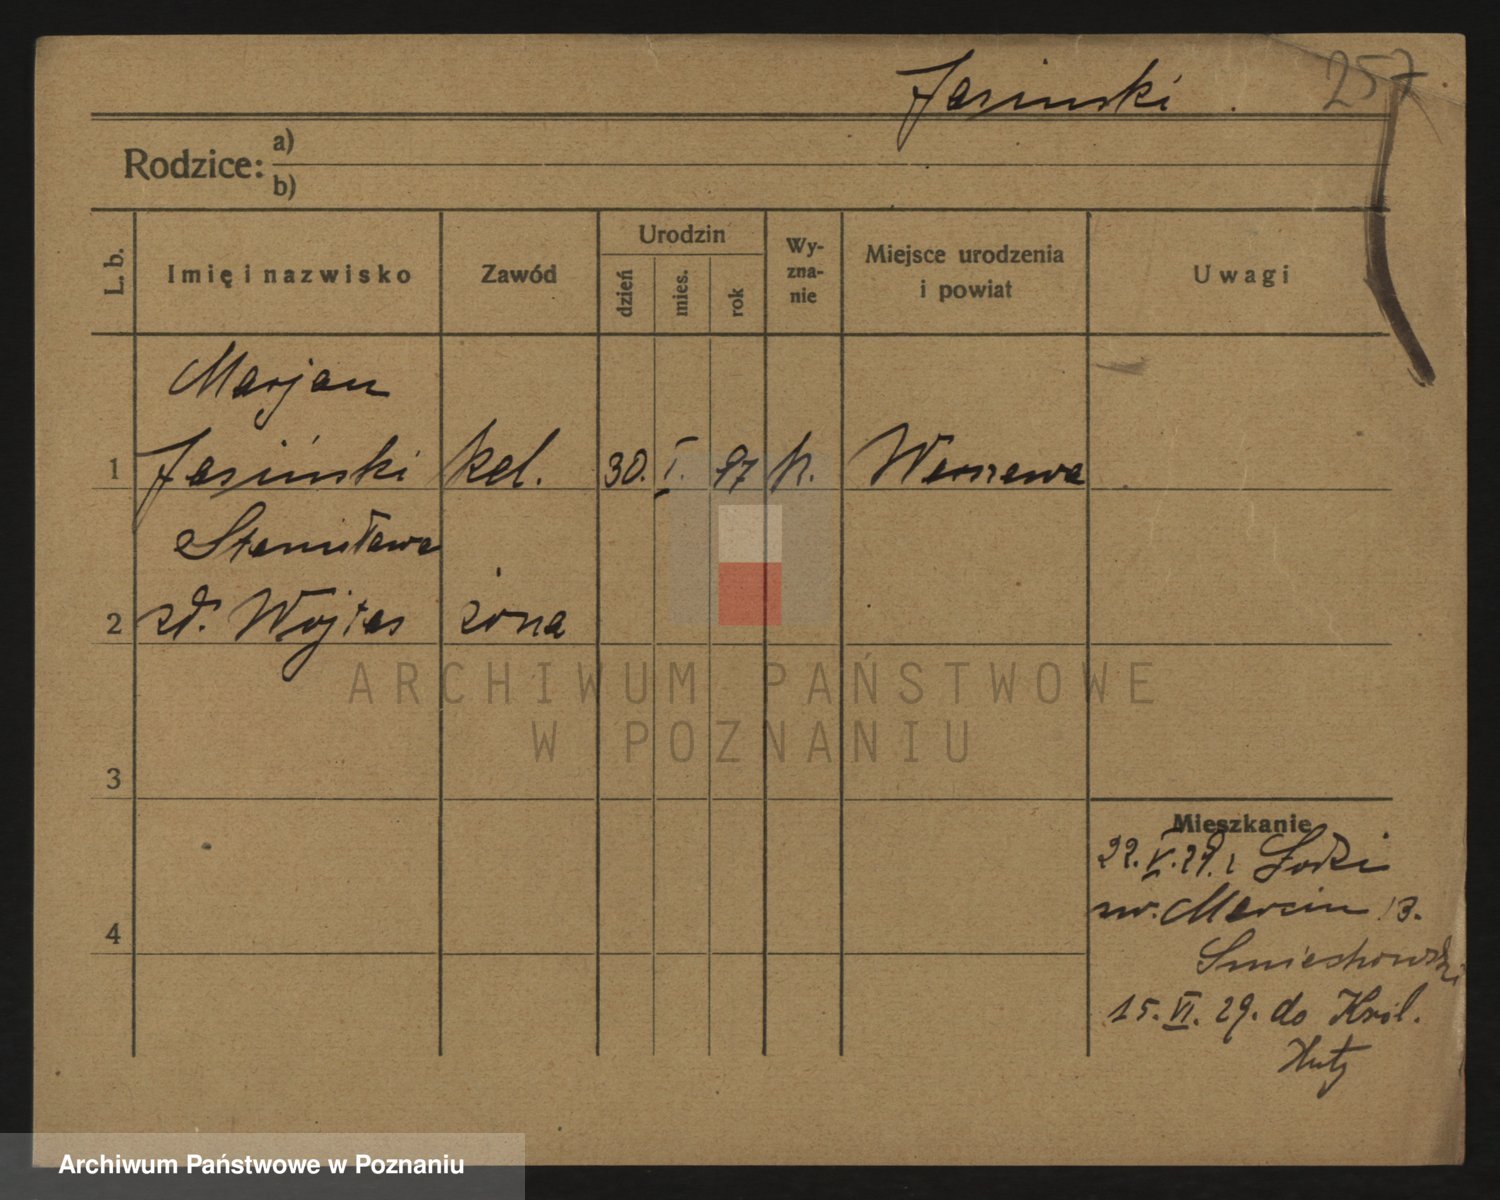 Jasinski. 257
Rodzice: a)
b)
L. b. Imię i nazwisko Zawód Urodzin dzień mies. rok Wy-zna-nie Miejsce urodzenia i powiat Uwagi
Marjan
1 Jasiński kel. 30. I. 97 k. Warszawa
Stanisława
2 zd. Wojtas żona
3
4
Mieszkanie
22. V. 29. z Łodzi
św. Marcin 13.
Śmiechowski
15. VI. 29. do Król.
Huty
ARCHIWUM PAŃSTWOWE
W POZNANIU
Archiwum Państwowe w Poznaniu